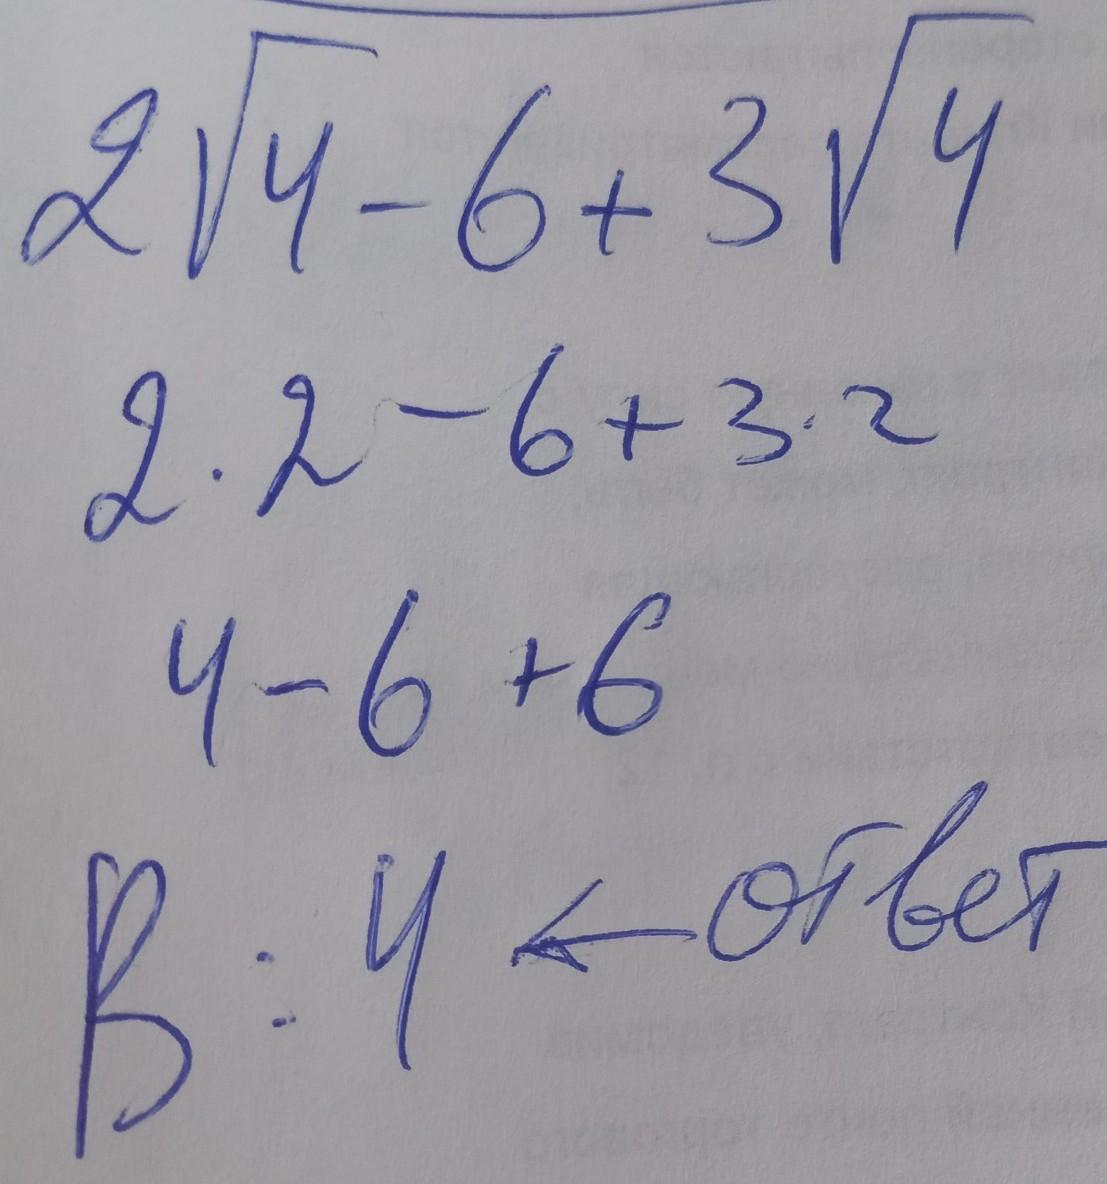 2√4 - 6 + 3√4
2 · 2 - 6 + 3 · 2
4 - 6 + 6
В : 4 ← ответ